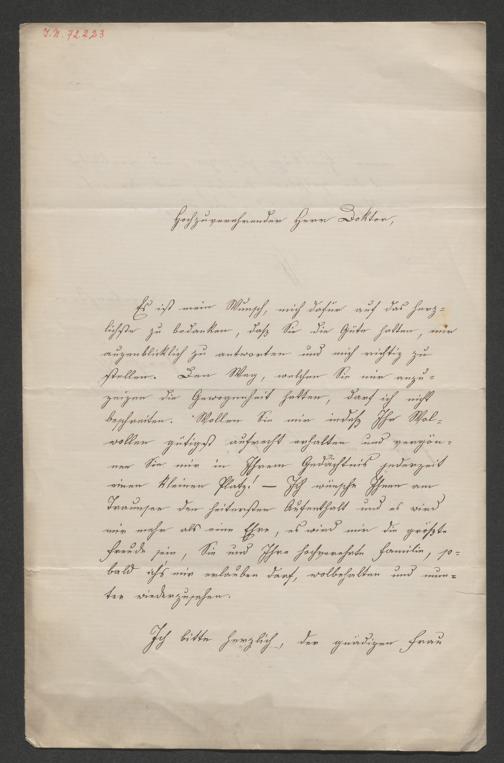 I.N. 72.223
Hochzuverehrender Herr Doktor,
Es ist mein Wunsch, mich dafür auf das herz-
lichste zu bedanken, daß Sie die Güte hatten, mir
augenblicklich zu antworten und mich richtig zu
stellen. Den Weg, welchen Sie mir anzu-
zeigen die Gewogenheit hatten, darf ich nicht
beschreiten. Wollen Sie mir indeß Ihr Wol-
wollen gütigst aufrecht erhalten und vergön-
nen Sie mir in Ihrem Gedächtnis jederzeit
einen kleinen Platz! — Ich wünsche Ihnen am
Traunsee den heitersten Aufenthalt und es wird
mir mehr als eine Ehre, es wird mir die größte
Freude sein, Sie und Ihre hochverehrte Familie, so-
bald ichs mir erlauben darf, wolbehalten und mun-
ter wiederzusehen.
Ich bitte herzlich, der gnädigen Frau